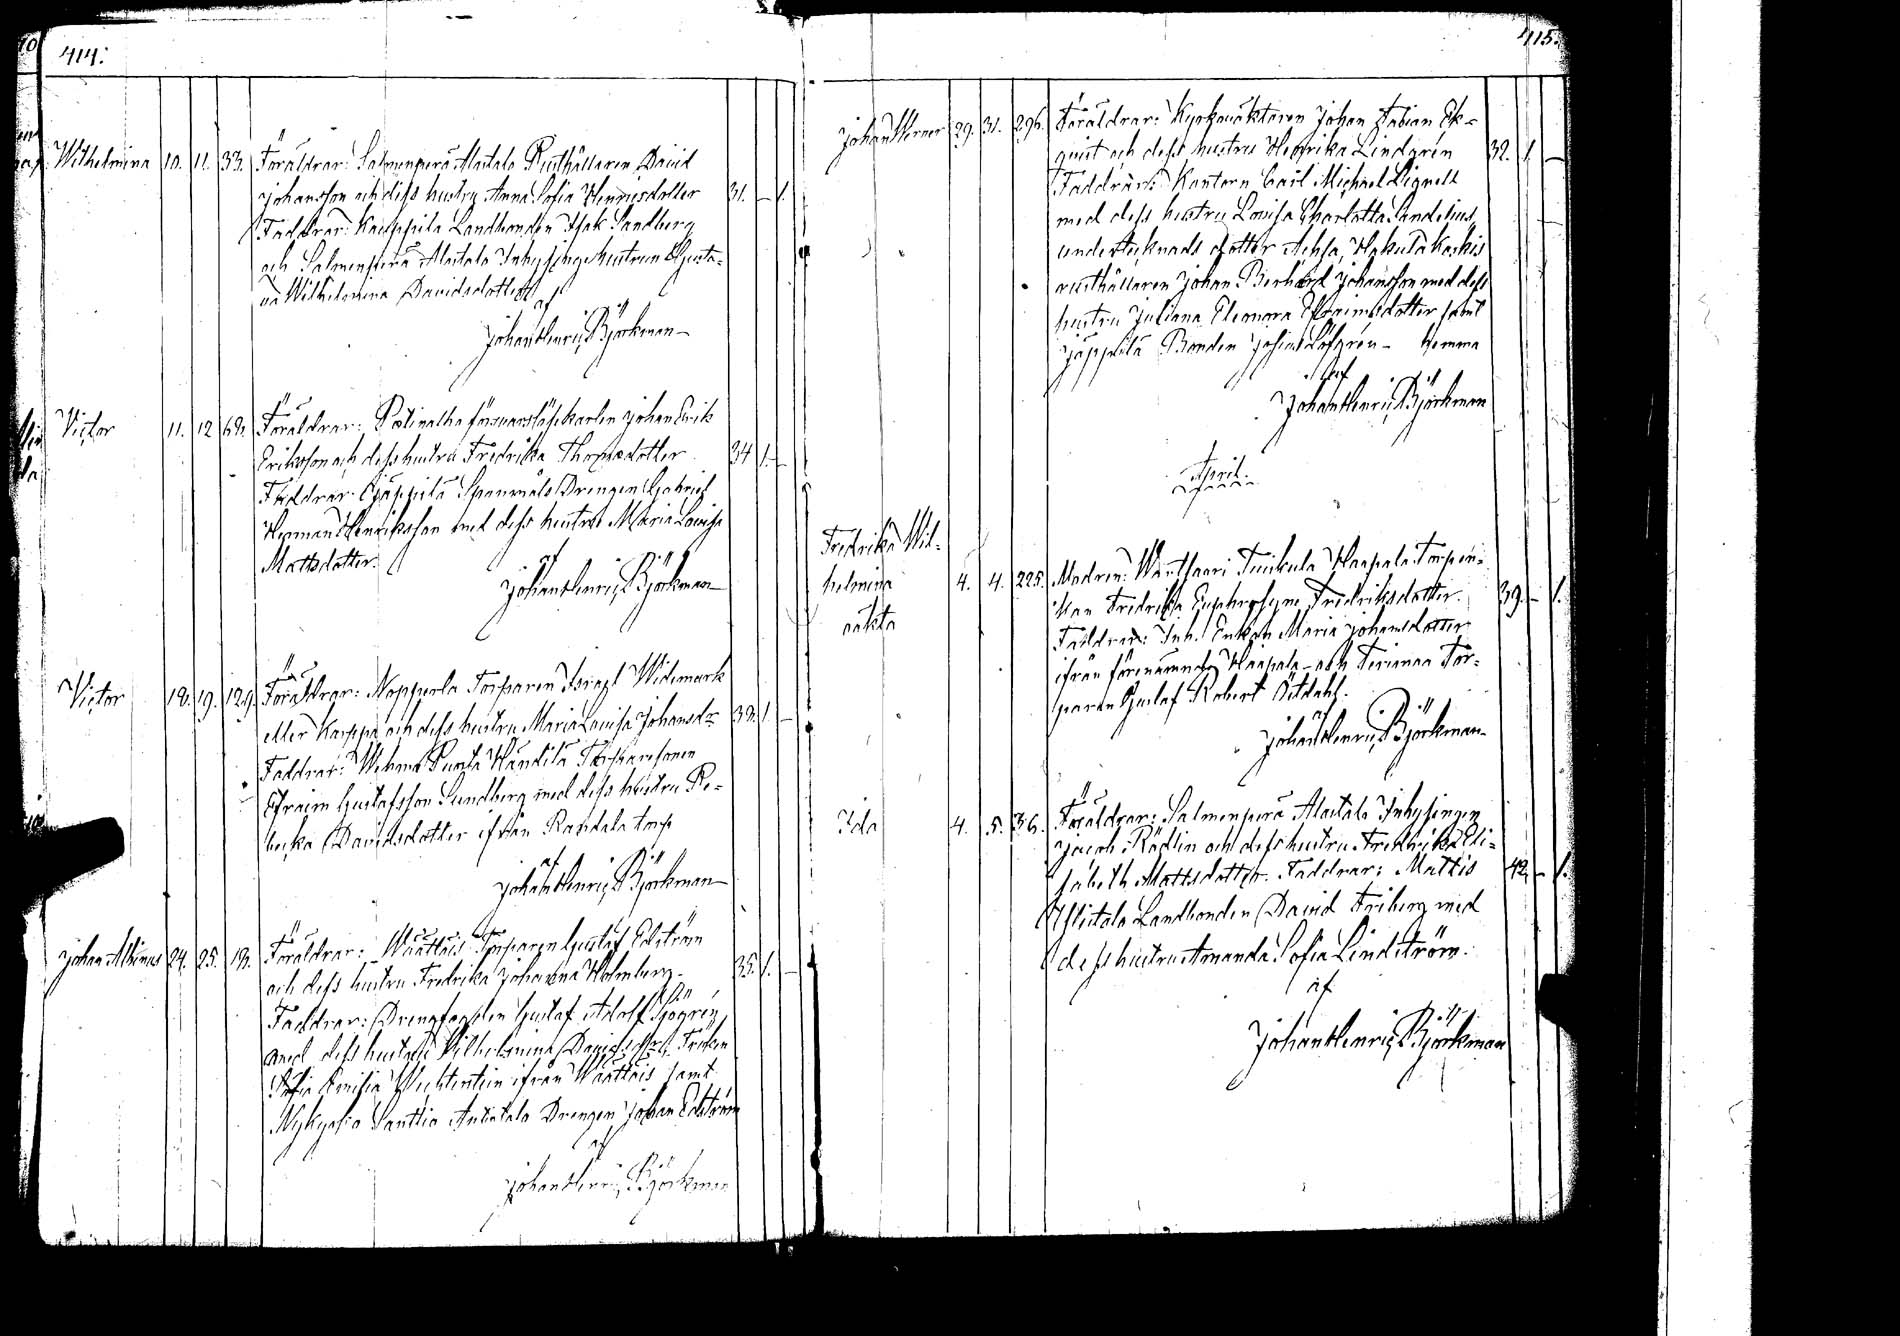 414.
Wilhelmina 10. 11. 33. Föräldrar: Salmenperä Alaitalo Rusthållaren David
Johansson och dess hustru Anna Sofia Henricsdotter 31. – 1.
Faddrar: Kauppila Landbonden Isak Sandberg
och Salmenperä Alaitalo Inhysinge hustrun Gusta-
va Wilhelmina Davidsdotter
af
Johan Henric Björkman
Victor 11. 12 Föräldrar: försvarslöse karlen Johan Erik
Eriksson och dess hustru Fredrika Thomasdotter 34 1. –
Faddrar: Jäppilä Spanmåls Drengen Gabriel
Herman Henriksson med dess hustru Maria Lovisa
Mattsdotter.
af
Johan Henric Björkman
Victor 18. 19. 129. Föräldrar: Nopperla Torparen Israel Widemark
eller Karppa och dess hustru Maria Lovisa Johansdr 1. –
Faddrar: Wehma Torparesonen
Efraim Gustafsson Sundberg med dess hustru Re-
becka Davidsdotter ifrån Rantala torp
af
Johan Henric Björkman
Johan Albinus 24. 25. 18. Föräldrar: Wäättäis Torparen Gustaf Edström
och dess hustru Fredrika Johanna Holmberg. 35. 1. –
Faddrar: Drengfogden Gustaf Adolf Sjögrén
med dess hustru Vilhelmina Fröken
Sofia Emilia ifrån Wäättäis samt
Nykyrko Santtio Antintalo Drengen Johan Edström
af
Johan Henric Björkman
415.
Johan Werner 29. 31. 296. Föräldrar: Kyrkoväktaren Johan Fabian Ek-
quist och dess hustru Henrika Lindgrén 32. 1. –
Faddrar: Kantorn Carl Michael Lignell
med dess hustru Lovisa Charlotta Sandelius,
undertecknads dotter Achsa, Hakula Koskis
rusthållaren Johan Berhard Johansson med dess
hustru Juliana Eleonora Efraimsdotter samt
Jäppilä Bonden Josua Löfgrén – Hemma
af
Johan Henric Björkman
April.
Fredrika Wil-
helmina
oäkta
4. 4. 225. Modren: Wartsaari Tuukula Haapala Torpen-
kan Fredrika Euphrosyne Fredriksdotter. 39. – 1.
Faddrar: Inh. Enkan Maria Johansdotter
ifrån förenämnde Haapala och Torimaa Tor-
paren Gustaf Robert Östdahl.
af
Johan Henric Björkman
Ida 4. 5. 36. Föräldrar: Salmenperä Alaitalo Inhysingen
Jacob Rödlin och dess hustru Fredrika Eli-
sabeth Mattsdotter. Faddrar: Mattis 42. – 1.
Ylitalo Landbonden David Friberg med
dess hustru Amanda Sofia Lindström.
af
Johan Henric Björkman